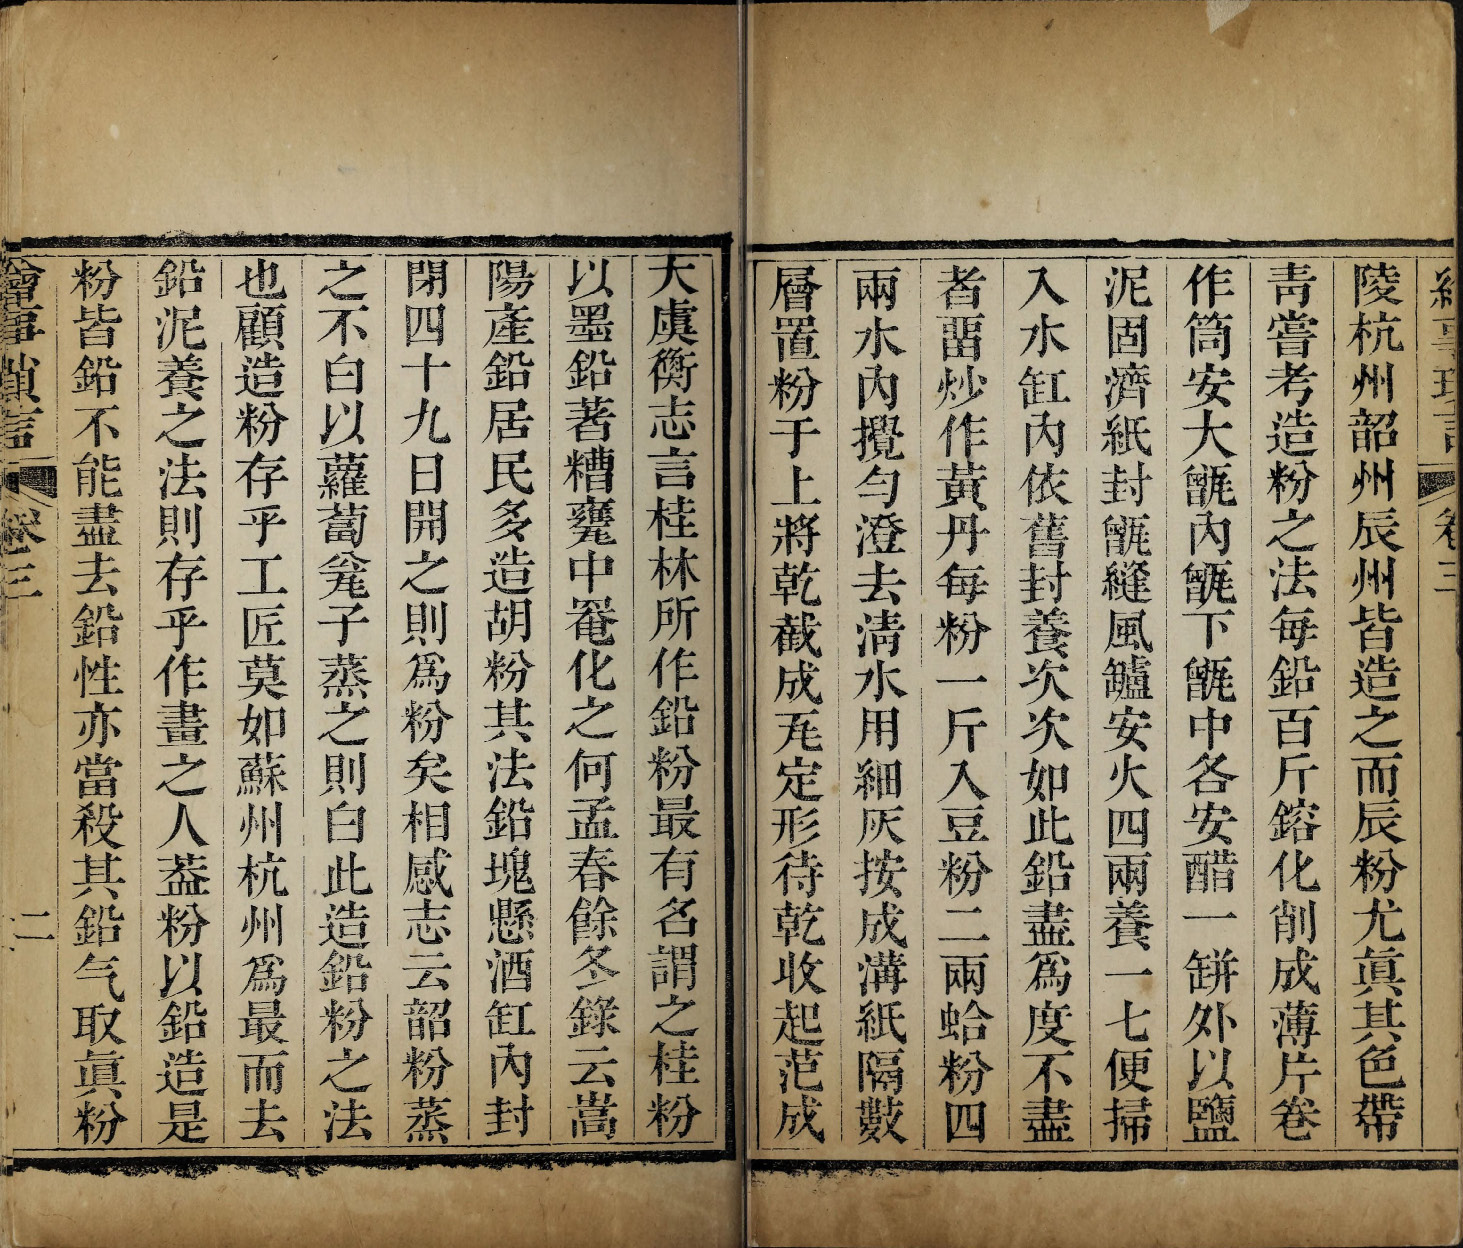 繪事瑣言 卷三
陵杭州韶州辰州皆造之而辰粉尤眞其色帶
靑嘗考造粉之法每鉛百斤鎔化削成薄片卷
作筒安大甑內甑下甑中各安醋一缾外以鹽
泥固濟紙封甑縫風鑪安火四兩養一七便掃
入水缸內依舊封養次次如此鉛盡爲度不盡
者畱炒作黃丹每粉一斤入豆粉二兩蛤粉四
兩水內攪勻澄去淸水用細灰按成溝紙隔數
層置粉于上將乾截成瓦定形待乾收起范成
大虞衡志言桂林所作鉛粉最有名謂之桂粉
以墨鉛著糟甕中罨化之何孟春餘冬錄云嵩
陽產鉛居民多造胡粉其法鉛塊懸酒缸內封
閉四十九日開之則爲粉矣相感志云韶粉蒸
之不白以蘿蔔瓮子蒸之則白此造鉛粉之法
也顧造粉存乎工匠莫如蘇州杭州爲最而去
鉛泥養之法則存乎作畫之人葢粉以鉛造是
粉皆鉛不能盡去鉛性亦當殺其鉛气取眞粉
繪事瑣言 卷三 二